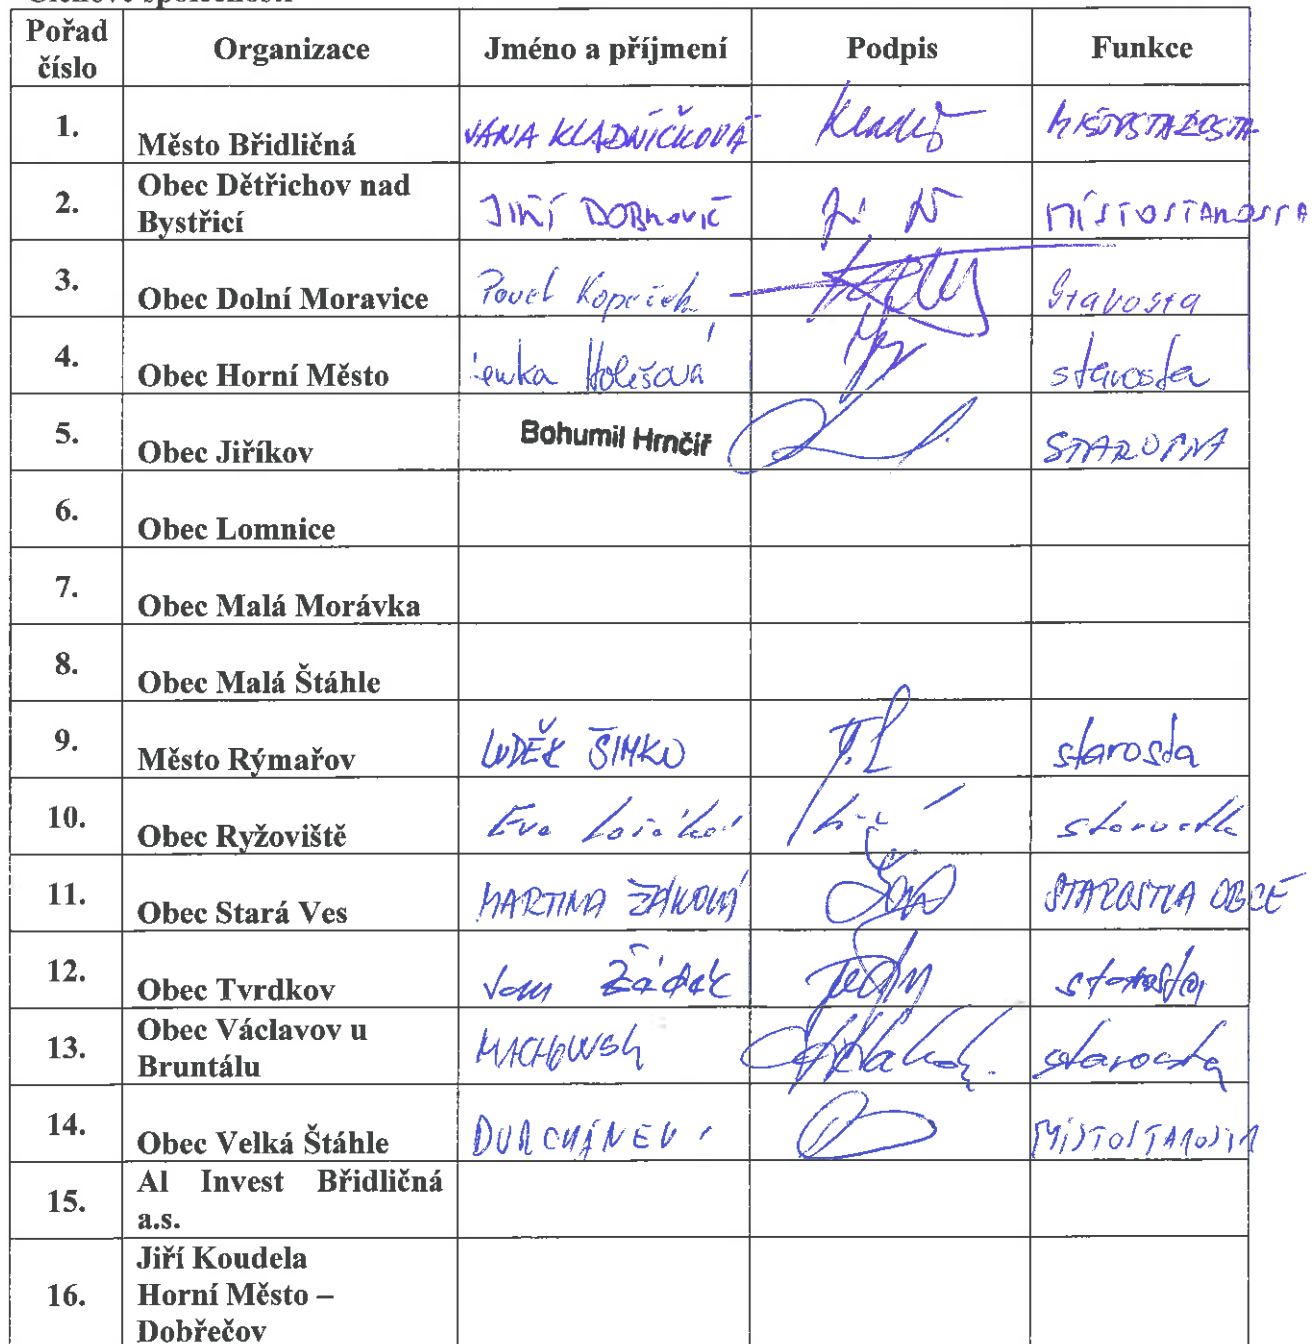 Pořad číslo Organizace Jméno a příjmení Podpis Funkce
1. Město Břidličná JANA KLADNÍČKOVÁ MÍSTOSTAROSTA
2. Obec Dětřichov nad
Bystřicí JIŘÍ MÍSTOSTAROSTA
3. Obec Dolní Moravice Pavel Kopeček starosta
4. Obec Horní Město Lenka Holešová starosta
5. Obec Jiříkov Bohumil Hrnčíř STAROSTA
6. Obec Lomnice
7. Obec Malá Morávka
8. Obec Malá Štáhle
9. Město Rýmařov LUDĚK ŠIMKO starosta
10. Obec Ryžoviště Eva starostka
11. Obec Stará Ves MARTINA ŽÁKOVÁ STAROSTKA OBCE
12. Obec Tvrdkov starosta
13. Obec Václavov u
Bruntálu starosta
14. Obec Velká Štáhle MÍSTOSTAROSTA
15. Al Invest Břidličná
a.s.
16. Jiří Koudela
Horní Město –
Dobřečov